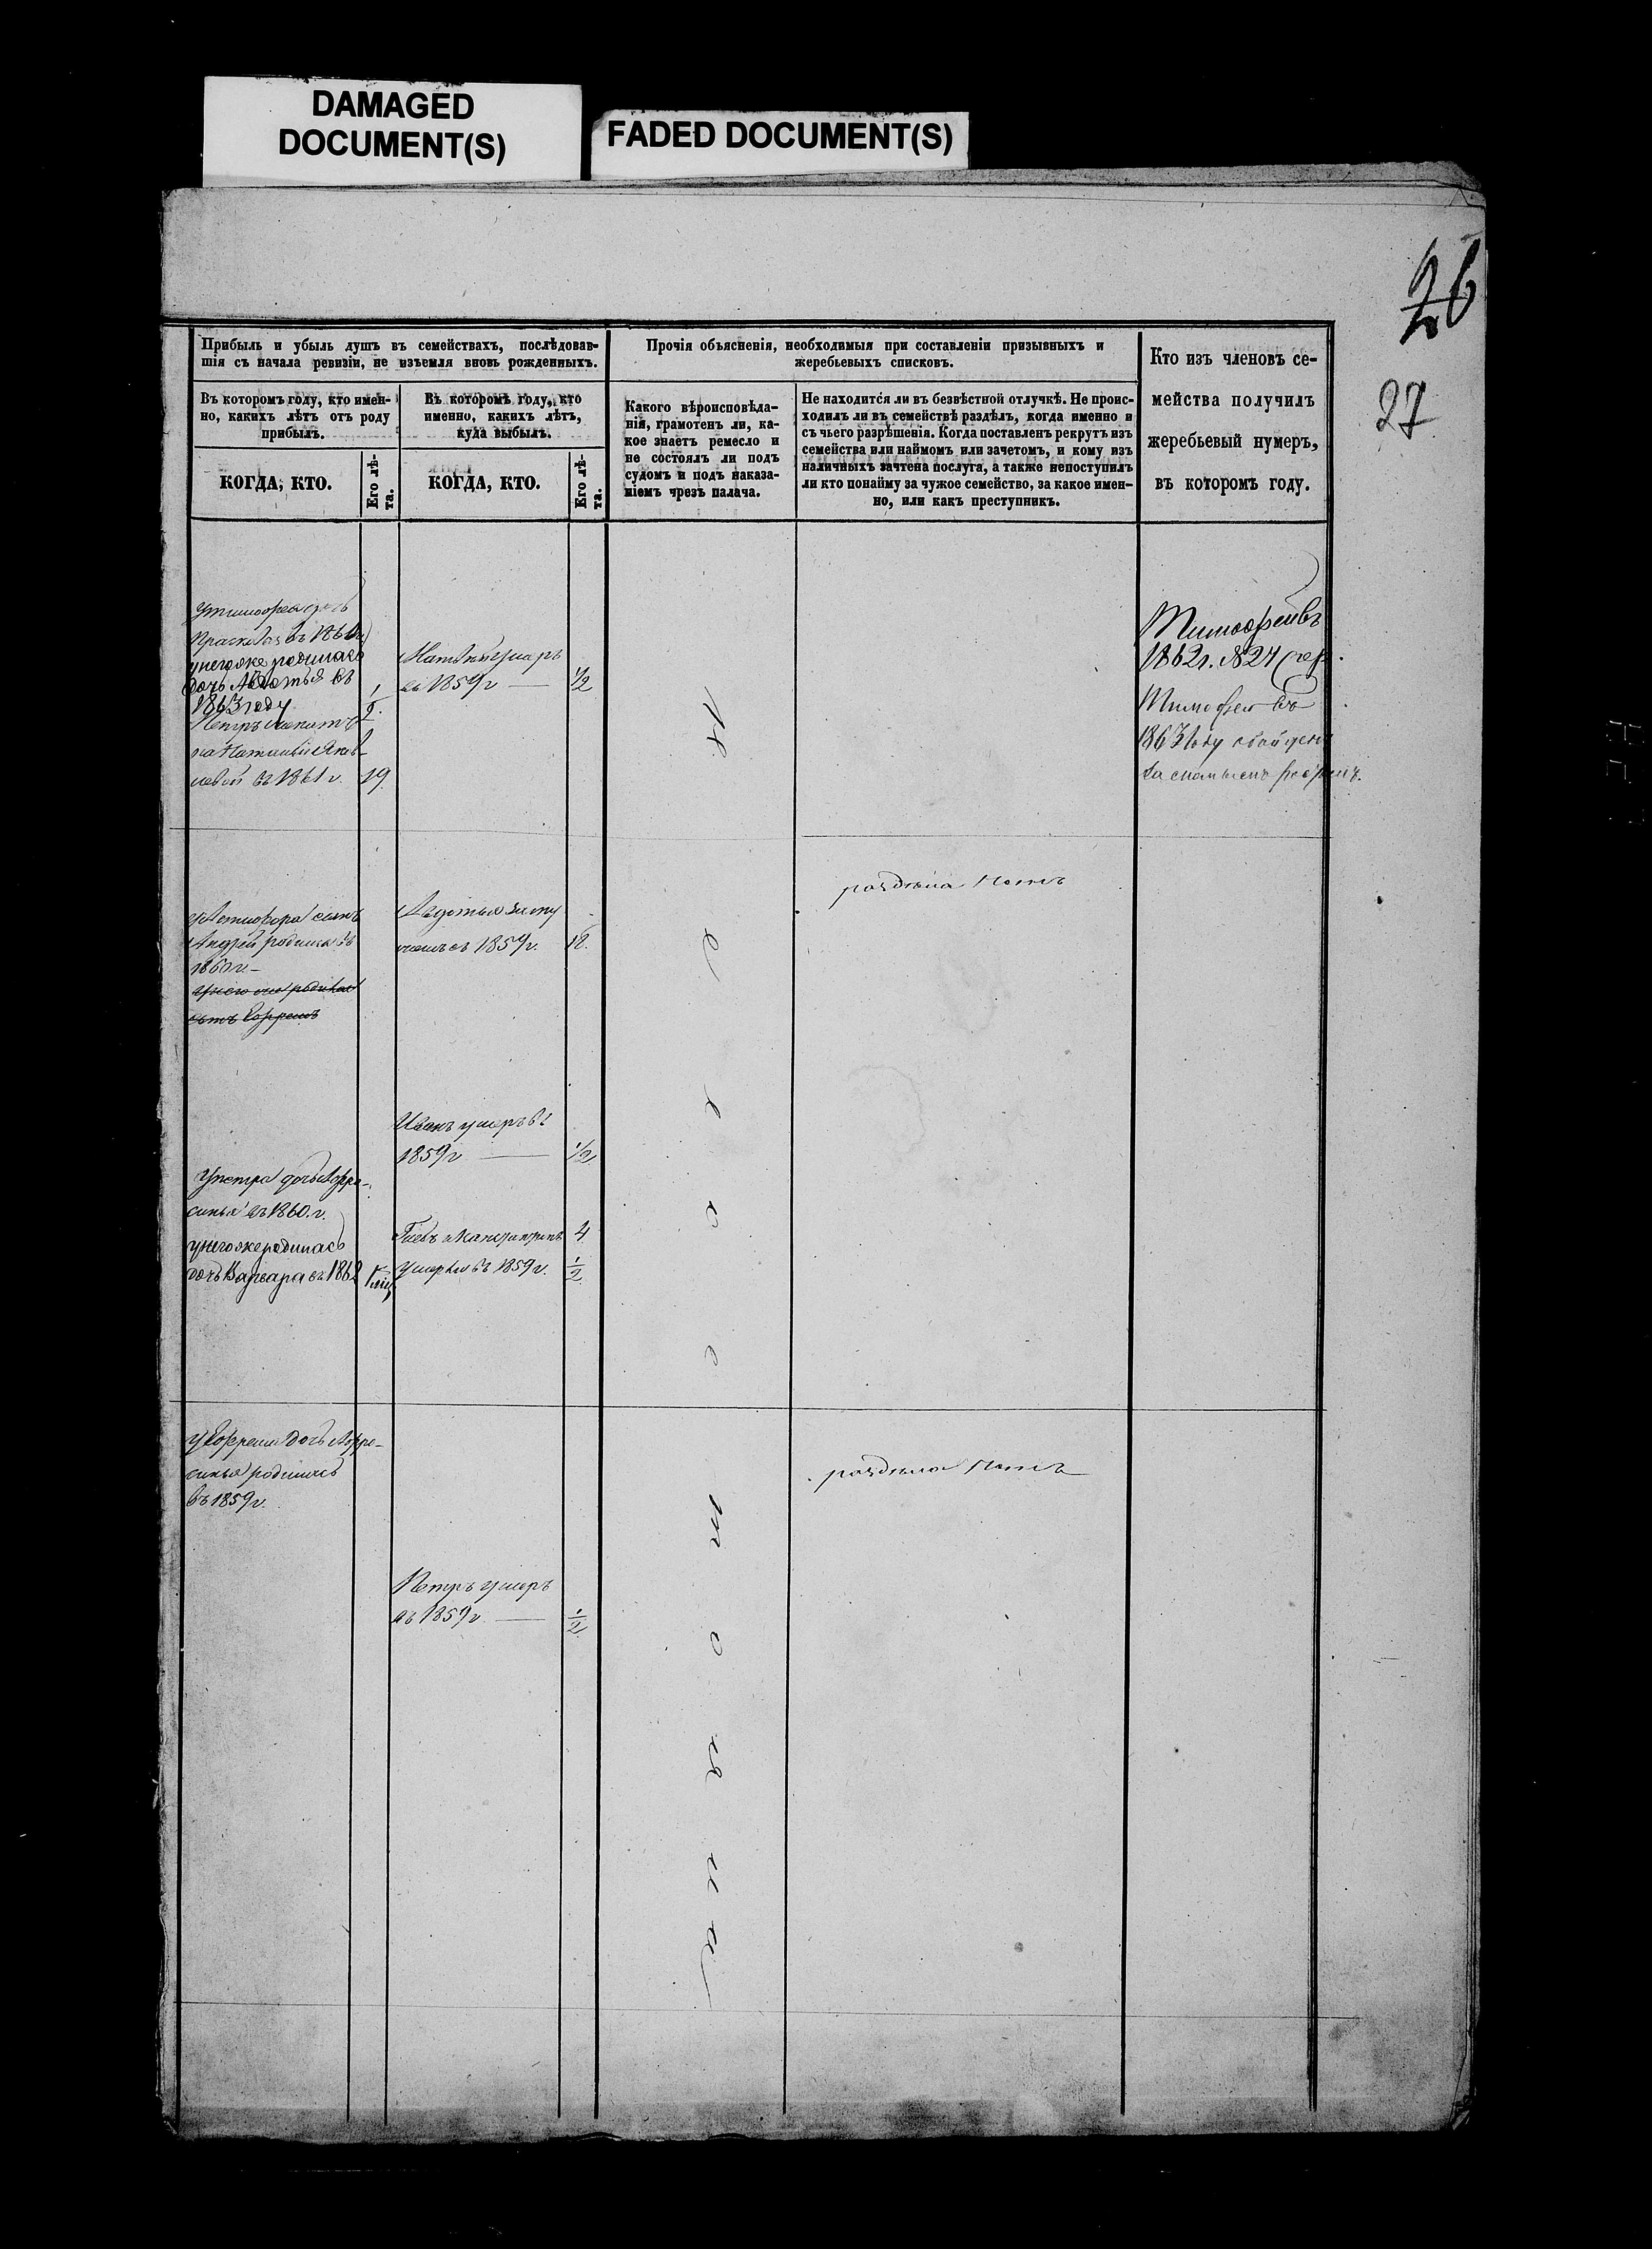 DAMAGED
DOCUMENT(S)
FADED DOCUMENT(S)
26
27
Прибыль и убыль душъ въ семействахъ, послѣдовав-
шія съ начала ревизіи, не изъемля вновь рожденныхъ.
Прочія объясненія, необходимыя при составленіи призывныхъ и
жеребьевыхъ списковъ.
Кто изъ членовъ се-
мейства получилъ
жеребьевый нумеръ,
въ которомъ году.
Въ которомъ году, кто имен-
но, какихъ лѣтъ отъ роду
прибылъ.
Въ которомъ году, кто
именно, какихъ лѣтъ,
куда выбылъ.
Какого вѣроисповѣда-
нія, грамотенъ ли, ка-
кое знаетъ ремесло и
не состоялъ ли подъ
судомъ и подъ наказа-
ніемъ чрезъ палача.
Не находится ли въ безвѣстной отлучкѣ. Не проис-
ходилъ ли въ семействѣ раздѣлъ, когда именно и
съ чьего разрѣшенія. Когда поставленъ рекрутъ изъ
семейства или наймомъ или зачетомъ, и кому изъ
наличныхъ зачтена послуга, а также непоступилъ
ли кто понайму за чужое семейство, за какое имен-
но, или какъ преступникъ.
КОГДА, КТО.
Его лѣ-
та.
КОГДА, КТО.
Его лѣ-
та.
у Тимофея дочь
Прасковья въ
у него же родилась
дочь Авдотья въ
1863 году
Петръ женитъ
на Наталіи Яков-
левой въ 1861 г. 19.
умеръ
въ 1859 г — 1/2
Тимофей въ
1862 г. № 24
Тимофей въ
1863 году обойденъ
раздѣла нетъ
сынъ
Андрей родился въ
1860 г. —
у него же родился
сынъ Ефремъ
Авдотья заму
жемъ съ 1859 г. 18.
Иванъ умеръ въ
1859 г — 1/2
у Петра дочь Афро-
синья въ 1860. г.
у него же родилась
дочь Варвара въ 1862
Глебъ и 4
умерли въ 1859 г. 1/2
у Ефрема дочь Афро-
синья родилась
въ 1859 г.
раздѣла нетъ
Петръ умеръ
въ 1859 г — 1/2